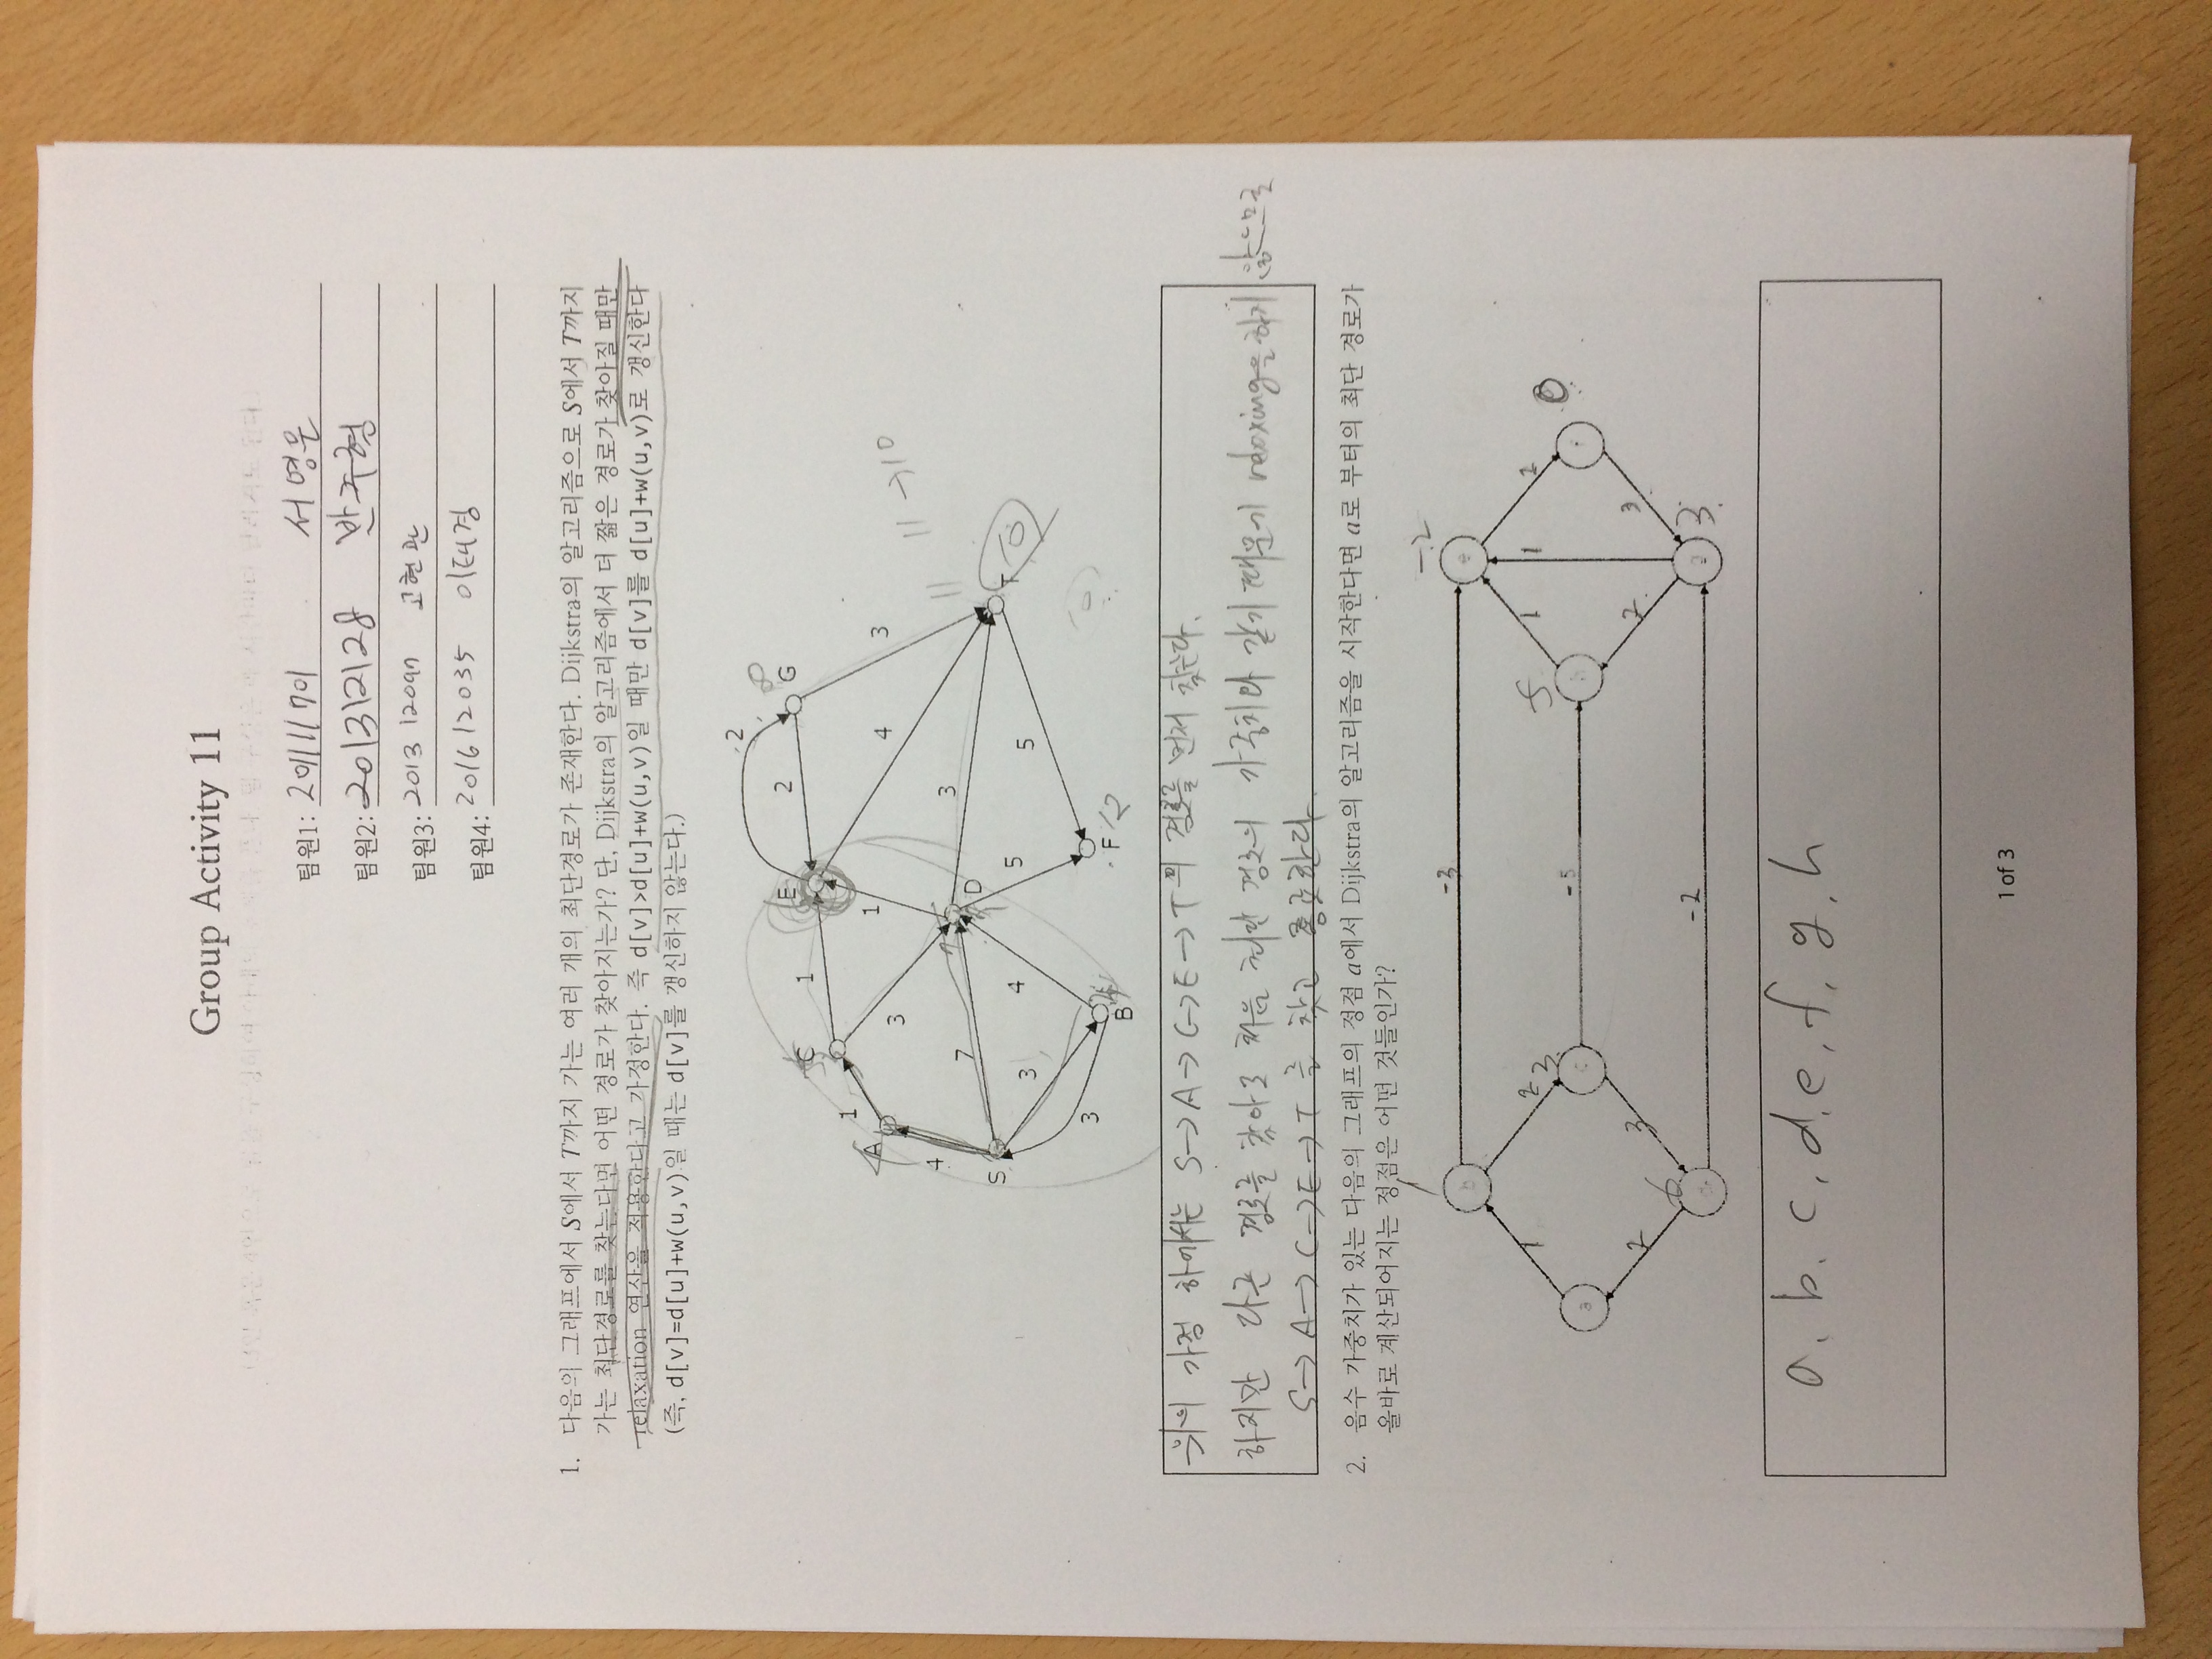 Group Activity 11
팀원1: 201111701 서영운
팀원2: 201312128 반주형
팀원3: 201312097 고현관
팀원4: 201612035 이태경
1. 다음의 그래프에서 S에서 T까지 가는 여러 개의 최단경로가 존재한다. Dijkstra의 알고리즘으로 S에서 T까지
가는 최단경로를 찾는다면 어떤 경로가 찾아지는가? 단, Dijkstra의 알고리즘에서 더 짧은 경로가 찾아질 때만
relaxation 연산을 적용한다고 가정한다. 즉 d[v]>d[u]+w(u,v)일 때만 d[v]를 d[u]+w(u,v)로 갱신한다
(즉, d[v]=d[u]+w(u,v)일 때는 d[v]를 갱신하지 않는다.)
2
∞
E
2
G
C
1
1
A
1
4
3
3
11 → 10
4
11
7
3
7
D
S
T
10
3
4
5
5
3
B
F 12
위의 가정 하에서는 S→A→C→E→T의 경로를 먼저 찾는다.
하지만 다른 경로를 찾아도 처음 최단 경로의 가중치와 같기 때문에 relaxing을 하지 않으므로
S→A→C→E→T 를 찾고 종료한다.
2. 음수 가중치가 있는 다음의 그래프의 정점 a에서 Dijkstra의 알고리즘을 시작한다면 a로 부터의 최단 경로가
올바로 계산되어지는 정점은 어떤 것들인가?
1
-2
b
-3
e
1
2
3
5
1
1
2
0
a
c
-5
h
f
2
3
2
3
6
d
-2
g
3
a, b, c, d, e, f, g, h
1 of 3